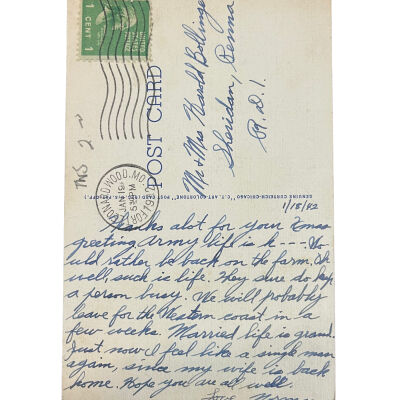 1 CENT 1
UNITED STATES POSTAGE
POST CARD
Mr & Mrs Harold Bollinger
Sheridan, Penna
R.D.1.
TNS 2
WOOD, MO.
JAN 19
5 30 PM
1942
GENUINE CURTEICH-CHICAGO "C.T. ART-COLORTONE" POST CARD (REG. U.S.A. PAT. OFF.)
1/18/42
Thanks alot for your Xmas
greeting. Army life is h---.
would rather be back on the farm. Oh
well, such is life. They sure do keep
a person busy. We will probably
leave for the Western coast in a
few weeks. Married life is grand.
Just now I feel like a single man
again, since my wife is back
home. Hope you are all well.
Love Norman